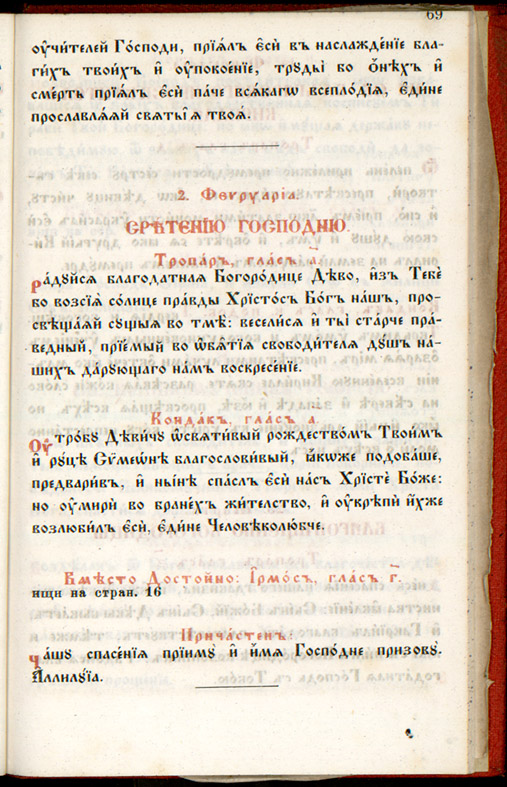 69
оу҆чи́телей Го́споди, прїѧ́лъ є҆сѝ въ наслажде́нїе бла-
ги́хъ твои́хъ и҆ оу҆покое́нїе, трꙋды̀ бо ѻ҆́нѣхъ и҆
сме́рть прїѧ́лъ є҆сѝ па́че всѧ́кагѡ всепло́дїѧ, є҆ди́не
прославлѧ́ѧй свѧты̑ѧ твоѧ̑.
2. Феврꙋа́рїа.
СРѢ́ТЕНЇЮ ГОСПО́ДНЮ.
Тропа́рь, гла́съ а҃.
Ра́дꙋйсѧ благода́тная Богоро́дице Дѣ́во, и҆зъ Тебє̀
бо возсїѧ̀ со́лнце пра́вды Хрїсто́съ Бо́гъ на́шъ, про-
свѣща́ѧй сꙋ́щыѧ во тмѣ̀: весели́сѧ и҆ ты̀ ста́рче пра́-
ведный, прїе́мый во ѡ҆б̾ѧ́тїѧ свободи́телѧ дꙋ́шъ на́-
шихъ да́рꙋющаго на́мъ воскресе́нїе.
Конда́къ, гла́съ а҃.
Оу҆тро́бꙋ Дѣ́вичꙋ ѡ҆свѧти́вый рождество́мъ Твои́мъ
и҆ рꙋ́цѣ Сѷмеѡ́нѣ благослови́вый, ꙗ҆́коже подоба́ше,
предвари́въ, и҆ ны́нѣ спа́слъ є҆сѝ на́съ Хрїстѐ Бо́же:
но оу҆мирѝ во бра́нехъ жи́телство, и҆ оу҆крѣпѝ и҆̀хже
возлюби́лъ є҆сѝ, є҆ди́не Человѣколю́бче.
Вмѣ́сто Досто́йно: І҆рмо́съ, гла́съ г҃.
ищи на стран. 16
Прича́стенъ:
Ча́шꙋ спасе́нїѧ прїимꙋ̀ и҆ и҆́мѧ Госпо́дне призовꙋ̀.
А҆ллилꙋ́їа.